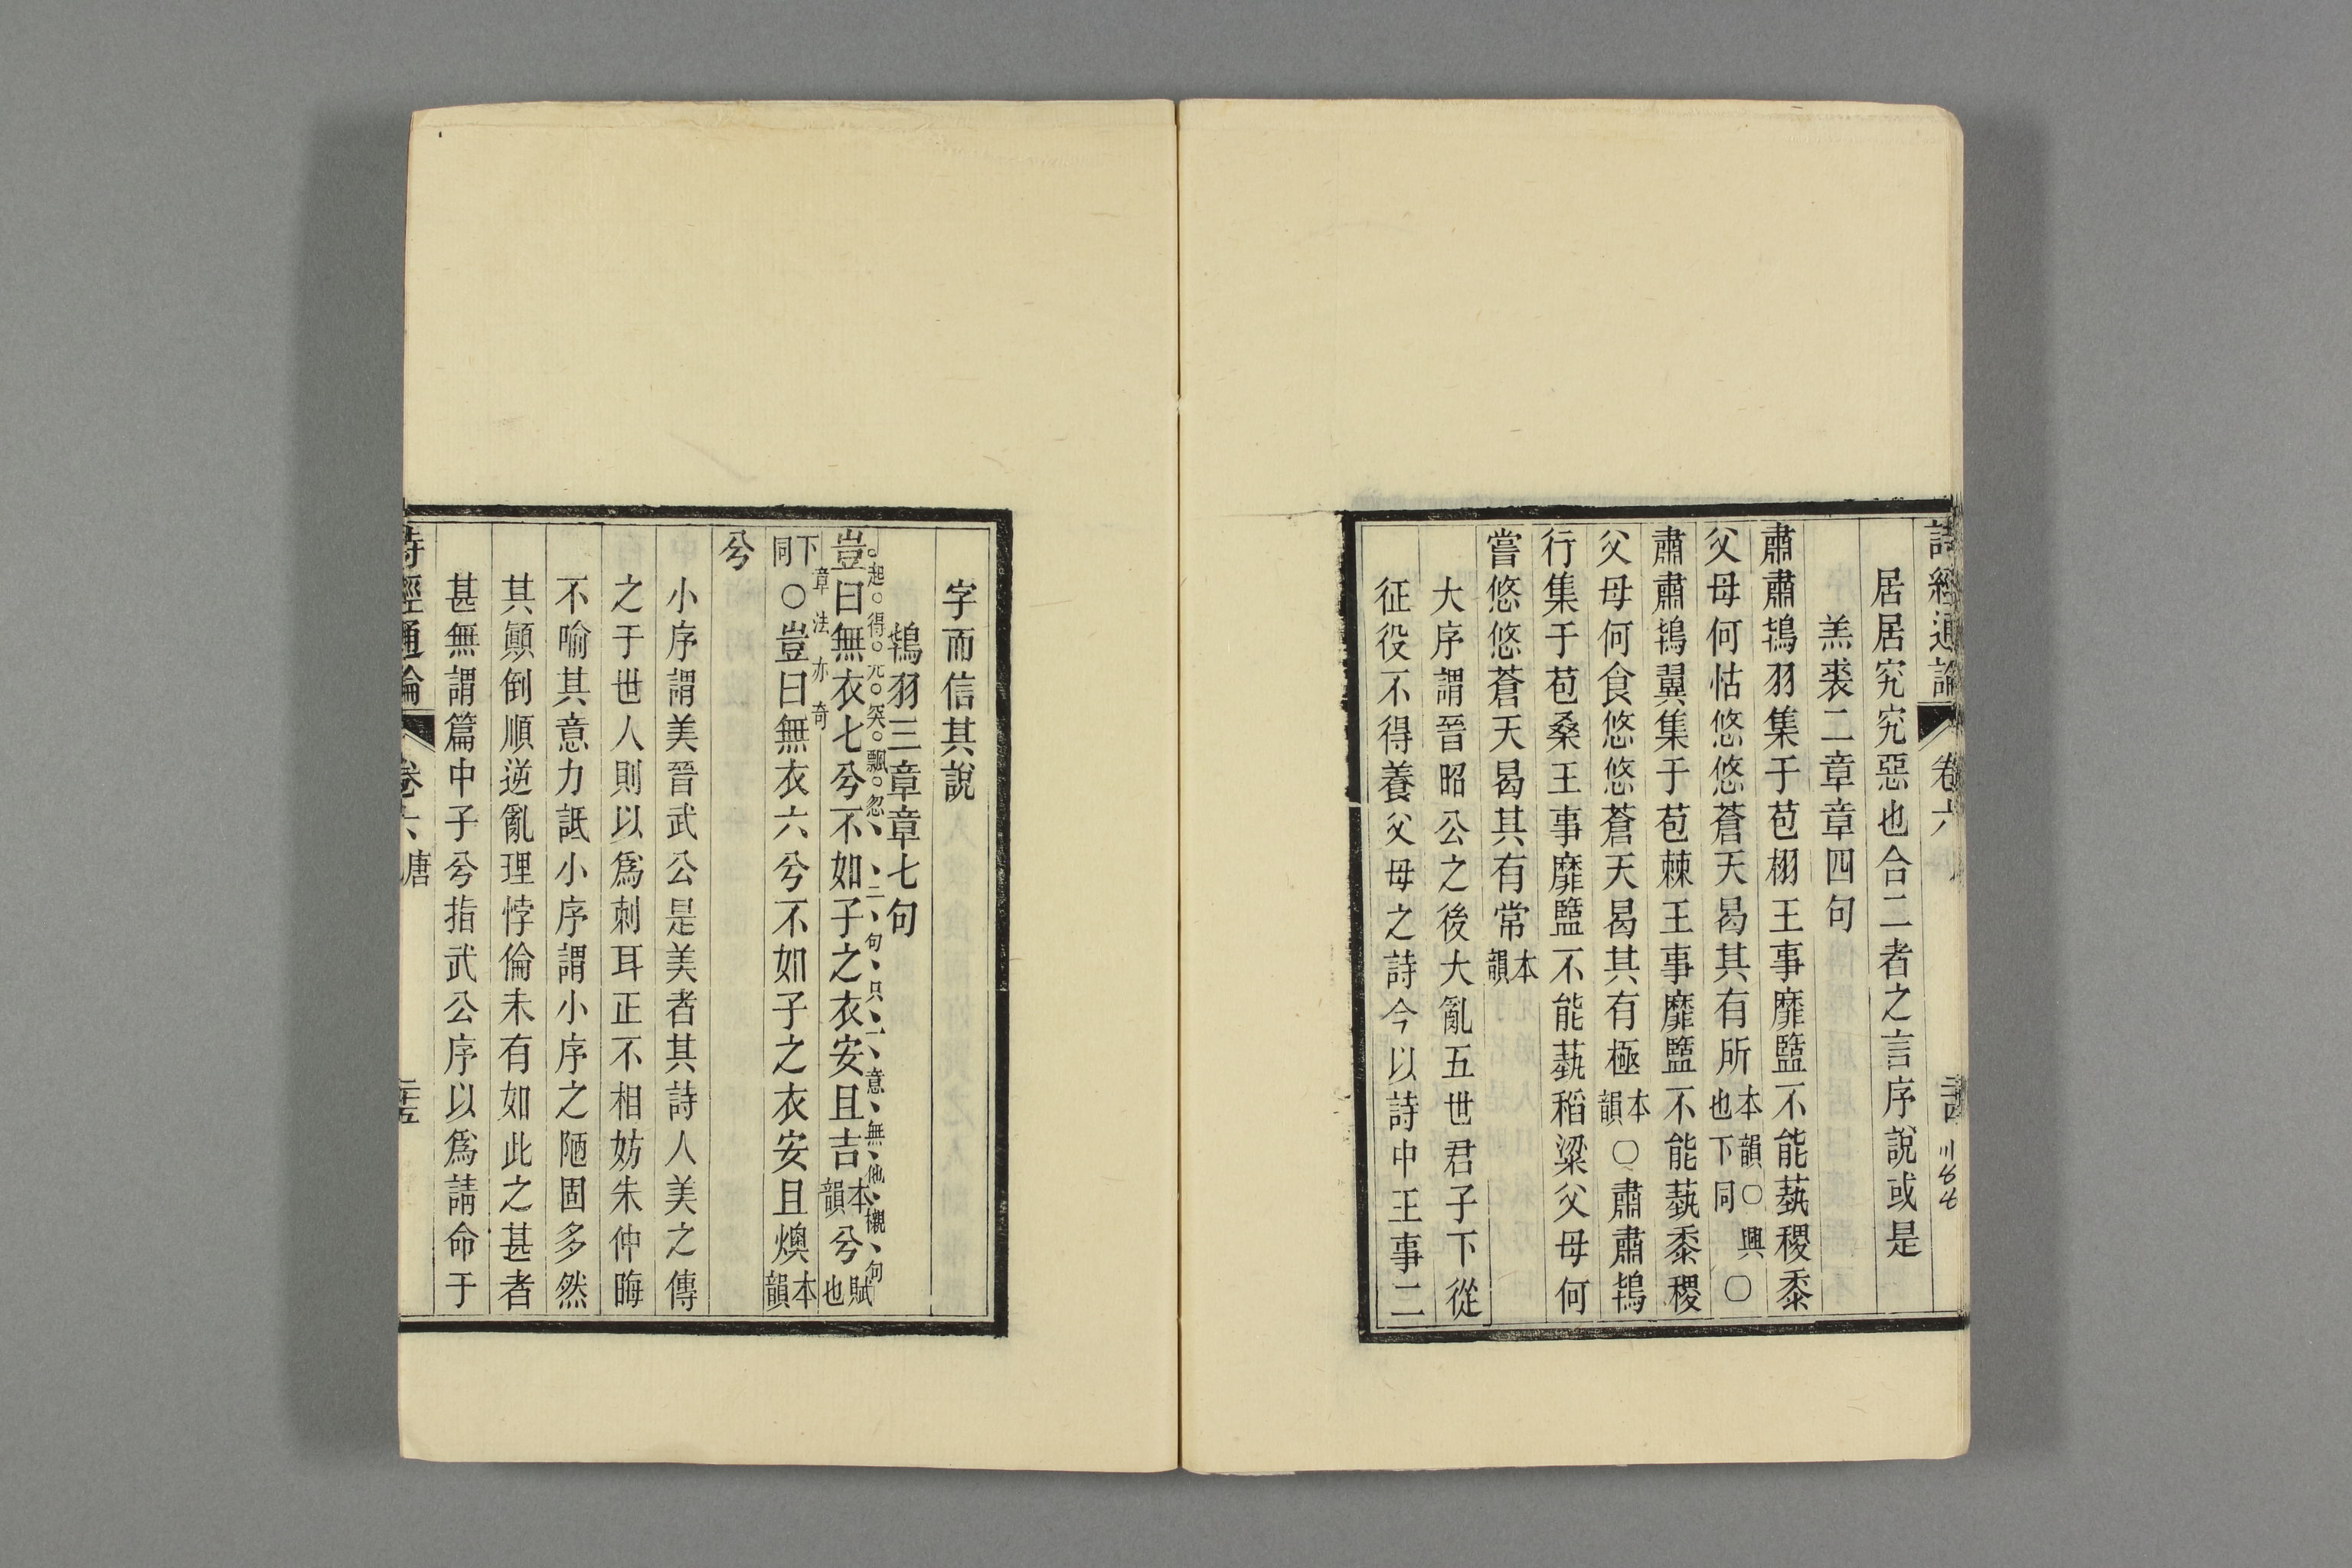 詩經通論 卷六
居居究究惡也合二者之言序說或是
羔裘二章章四句
肅肅鴇羽集于苞栩王事靡盬不能蓺稷黍
父母何怙悠悠蒼天曷其有所本韻○興○也下同
肅肅鴇翼集于苞棘王事靡盬不能蓺黍稷
父母何食悠悠蒼天曷其有極本韻○肅肅鴇
行集于苞桑王事靡盬不能蓺稻粱父母何
嘗悠悠蒼天曷其有常本韻
大序謂晉昭公之後大亂五世君子下從
征役不得養父母之詩今以詩中王事二
字而信其說
鴇羽三章章七句
起得兀突飄忽 二句只一意無他襯句
豈曰無衣七兮不如子之衣安且吉本韻兮賦也
章法亦奇
下同○豈曰無衣六兮不如子之衣安且燠本韻
兮
小序謂美晉武公是美者其詩人美之傳
之于世人則以爲刺耳正不相妨朱仲晦
不喻其意力詆小序謂小序之陋固多然
其顚倒順逆亂理悖倫未有如此之甚者
甚無謂篇中子兮指武公序以爲請命于
詩經通論 卷六 唐 二五